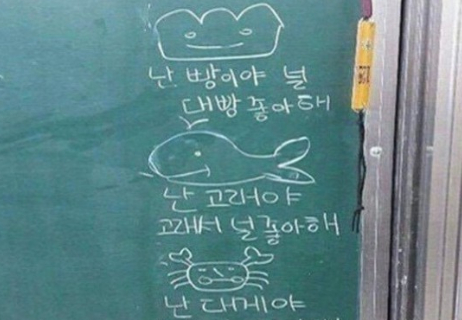 난 빵이야 널
대빵 좋아해
난 고래야
고래서 널 좋아해
난 대게야